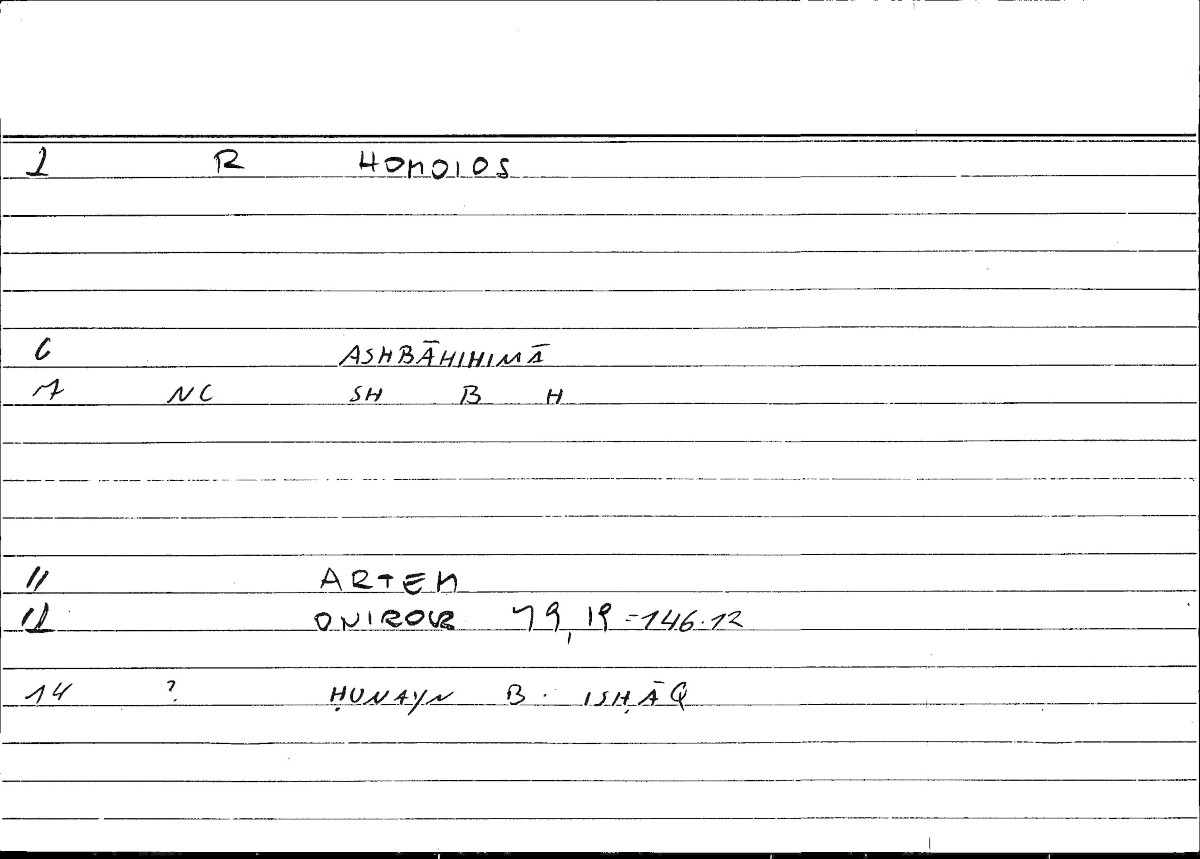 1 R HOMOIOS
6 ASHBĀHIHIMĀ
7 NC SH B H
11 ARTEM
12 ONIROKR 79,19=146.12
14 ? ḤUNAYN B. ISḤĀQ